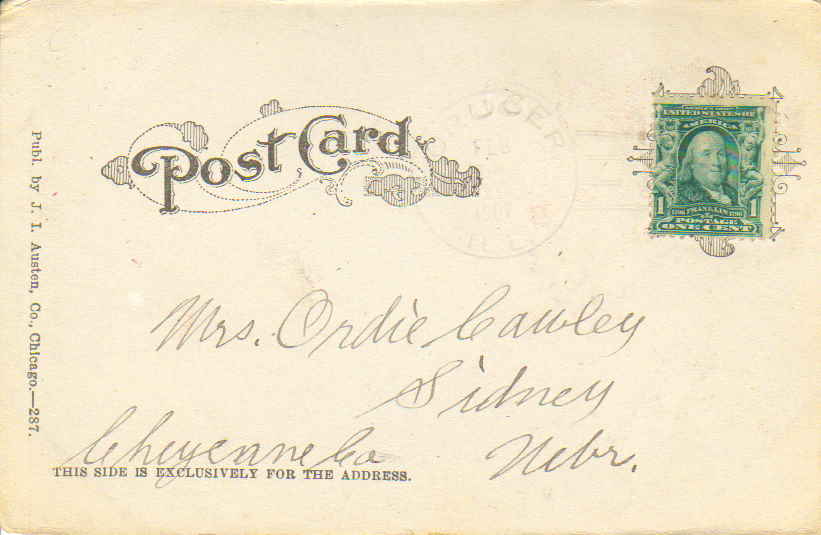 Post Card
UNITED STATES OF
AMERICA
1 1
FRANKLIN
POSTAGE
ONE CENT
Publ. by J. I. Austen, Co., Chicago.—287.
Mrs. Ordie Cawley
Sidney
Cheyenne Co Nebr.
THIS SIDE IS EXCLUSIVELY FOR THE ADDRESS.